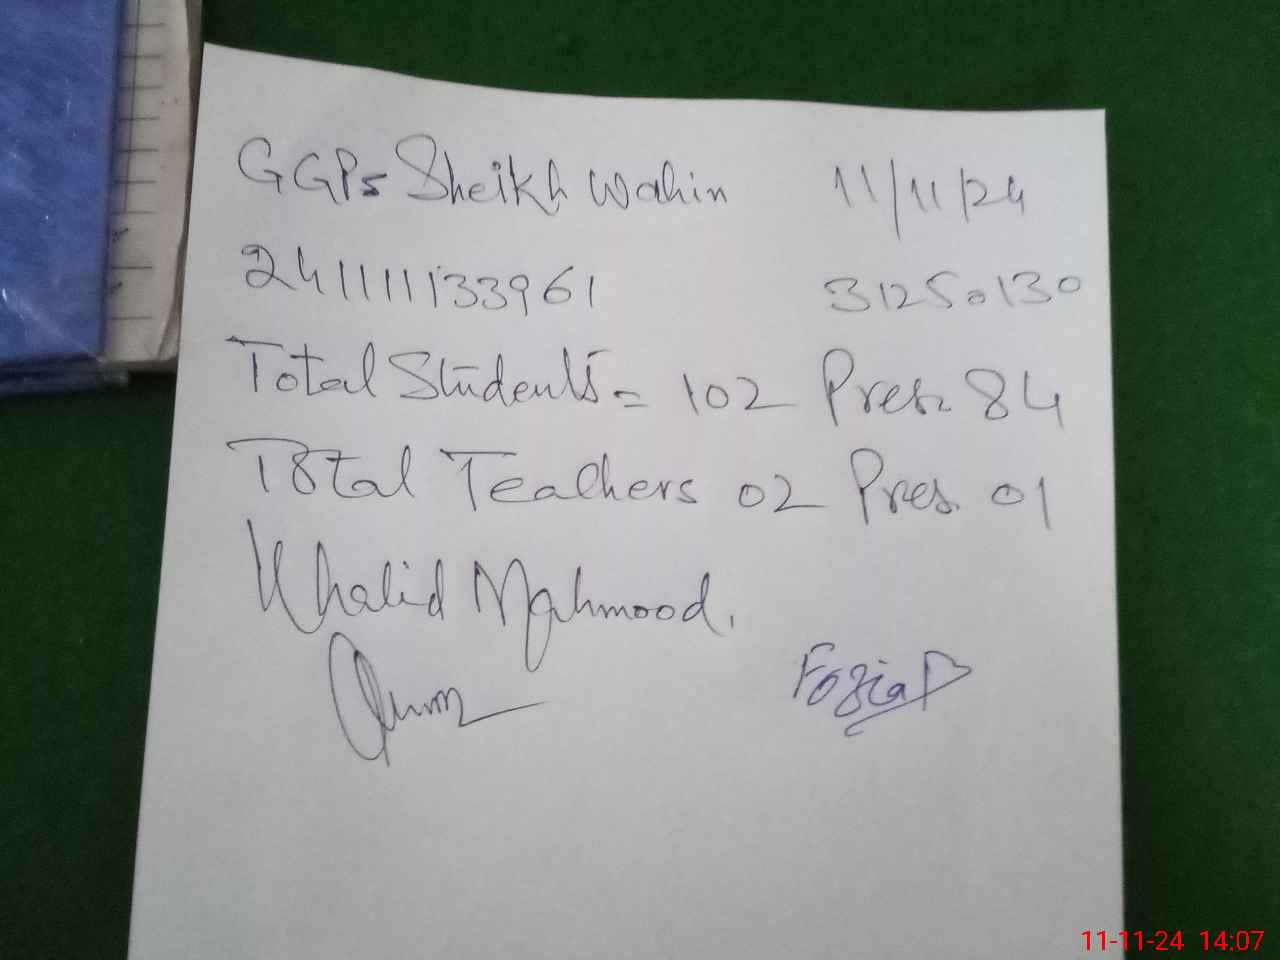 GGPS Sheikh Wahin 11/11/24
241111133961 31250130
Total Students = 102 Pres. 84
Total Teachers 02 Pres. 01
Khalid Mahmood.
Fozia
11-11-24 14:07